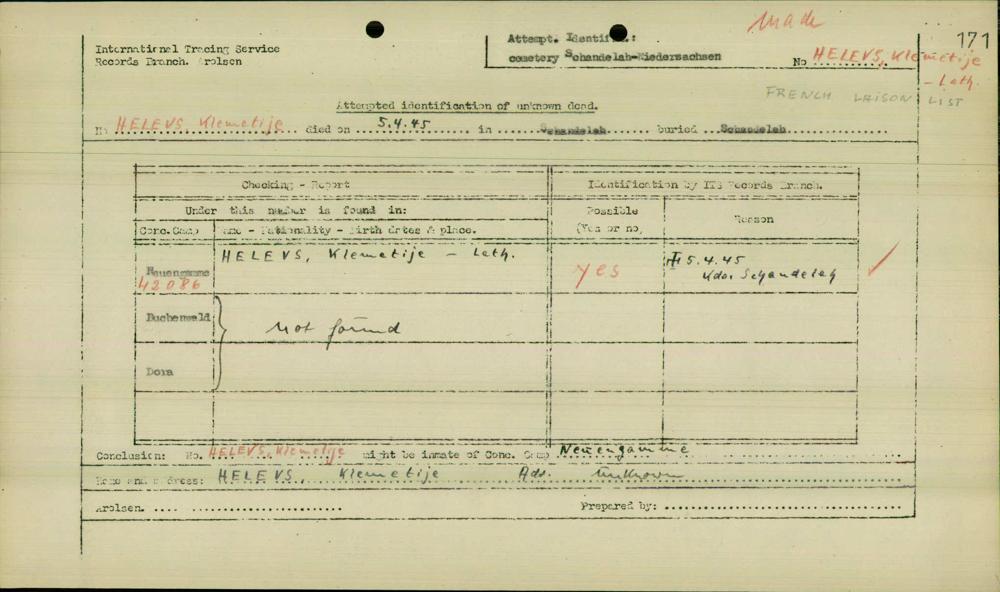 made
171
International Tracing Service
Records Branch. Arolsen
Attempt. Identif.:
cemetery Schandelah-Niedersachsen
No HELEVS, Klemetije
- Leth.
FRENCH LAISON LIST
Attempted identification of unknown dead.
No HELEVS, Klemetije died on 5.4.45 in Schandelah buried Schandelah
Checking - Report
Identification by ITS Records Branch.
Under this number is found in:
Possible
(Yes or no)
Reason
Conc.Camp
Name - Nationality - Birth dates & place.
HELEVS, Klemetije - Leth.
Neuengamme
42086
yes
5.4.45
Kdo. Schandelah
Buchenwald
Not found
Dora
Conclusion: No. HELEVS, Klemetije might be inmate of Conc. Camp Neuengamme
Name and address: HELEVS, Klemetije Ads. Unknown
Arolsen.
Prepared by: